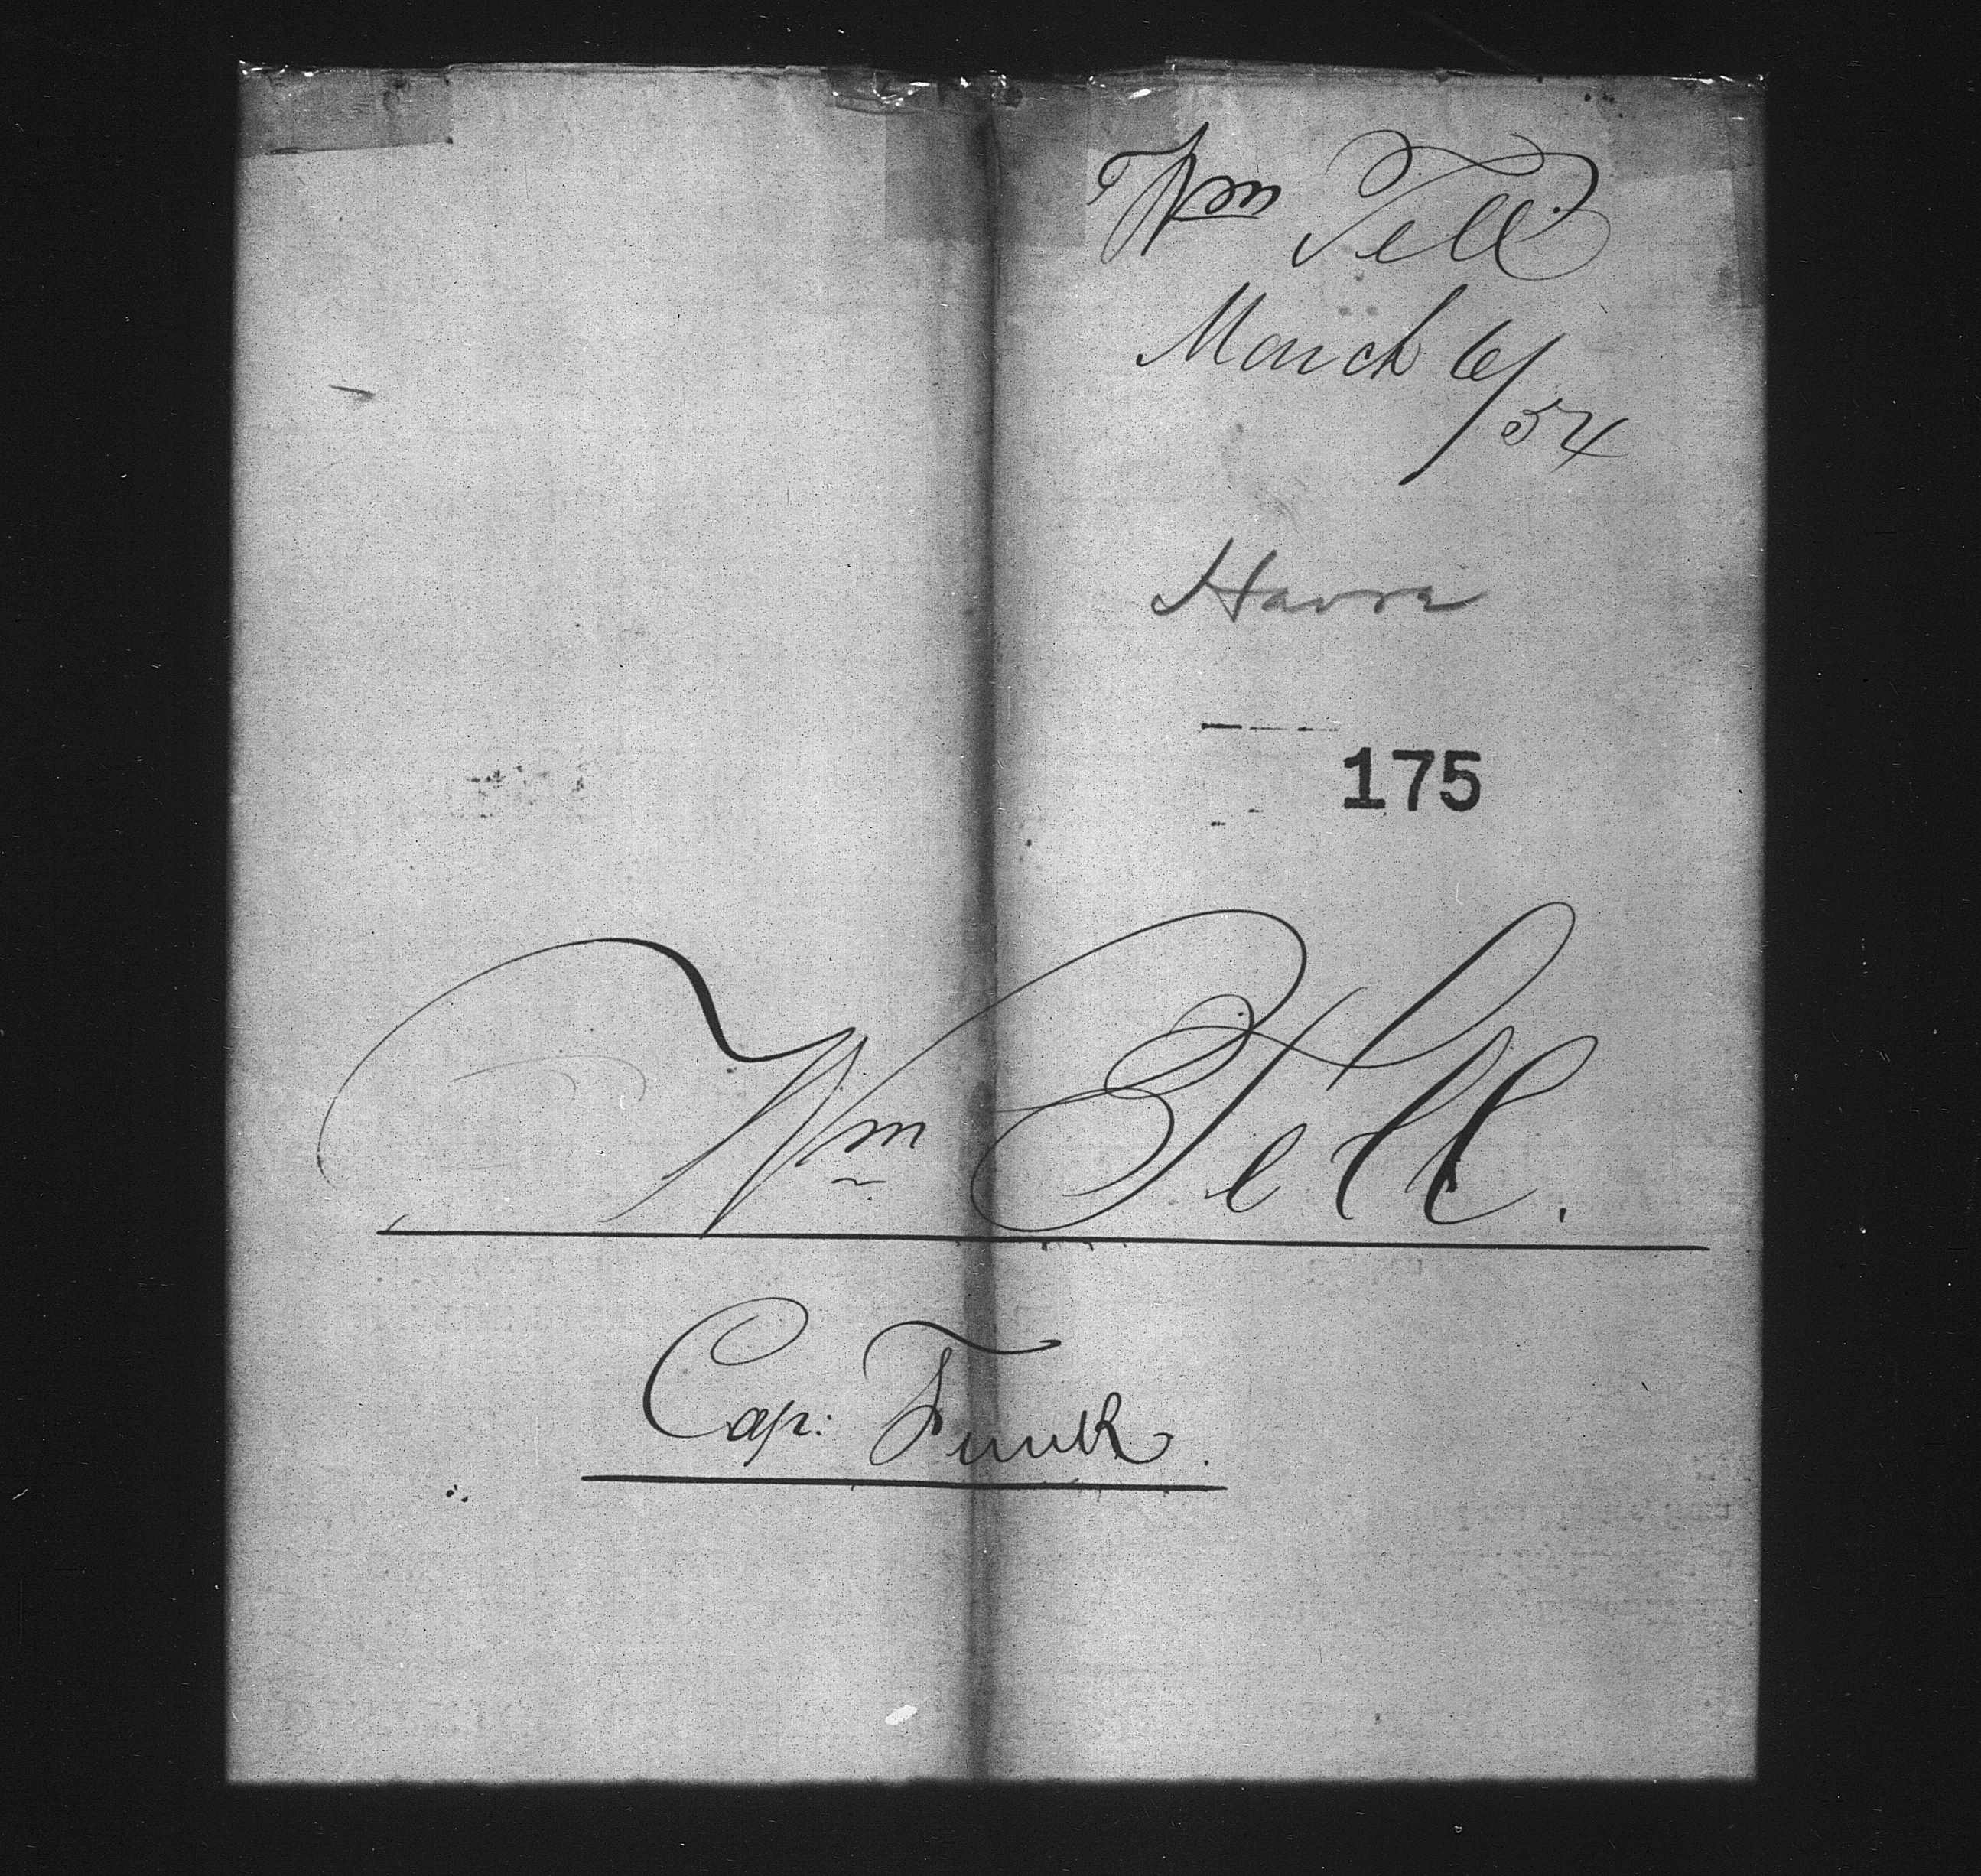 Wm Tell
March 6/54
Havre
175
Wm Tell.
Cap: Funk.